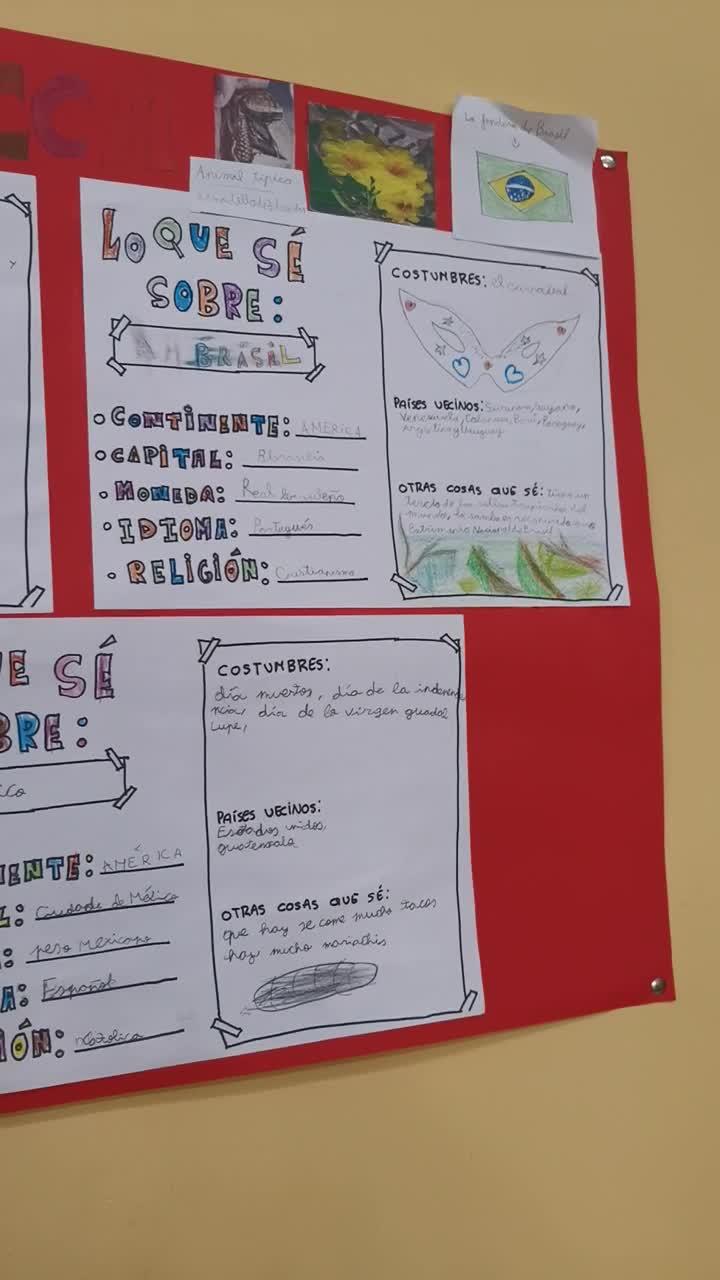 La bandera de Brasil
Animal típico
LO QUE SÉ
SOBRE:
BRASIL
CONTINENTE: AMÉRICA
CAPITAL:
MONEDA: Real brasileño
IDIOMA: Portugués
RELIGIÓN: Cristianismo
COSTUMBRES: el carnaval
PAÍSES VECINOS: Surinam, Guyana,
Venezuela, Colombia, Perú, Paraguay,
Argentina y Uruguay
OTRAS COSAS QUE SÉ: tiene un
tercio de las selvas tropicales del
mundo, la samba es reconocida
Nacional de Brasil
E SÉ
BRE:
ico
NENTE: AMÉRICA
L: Ciudade de México
: peso Mexicano
A: Español
IÓN: Católica
COSTUMBRES:
día muertos, día de la indepen
ncia, día de la virgen guadal
Lupe,
PAÍSES VECINOS:
Estados unidos,
guatemala
OTRAS COSAS QUE SÉ:
que hay se come mucho tacos
hay mucho mariachis